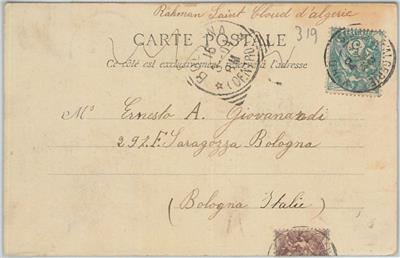 Rahman Saint Cloud d'algerie
319
CARTE POSTALE
Ce côté est exclusivement réservé à l'adresse
Ms Ernesto A. Giovanardi
292 F. Saragozza Bologna
(Bologna Italie)